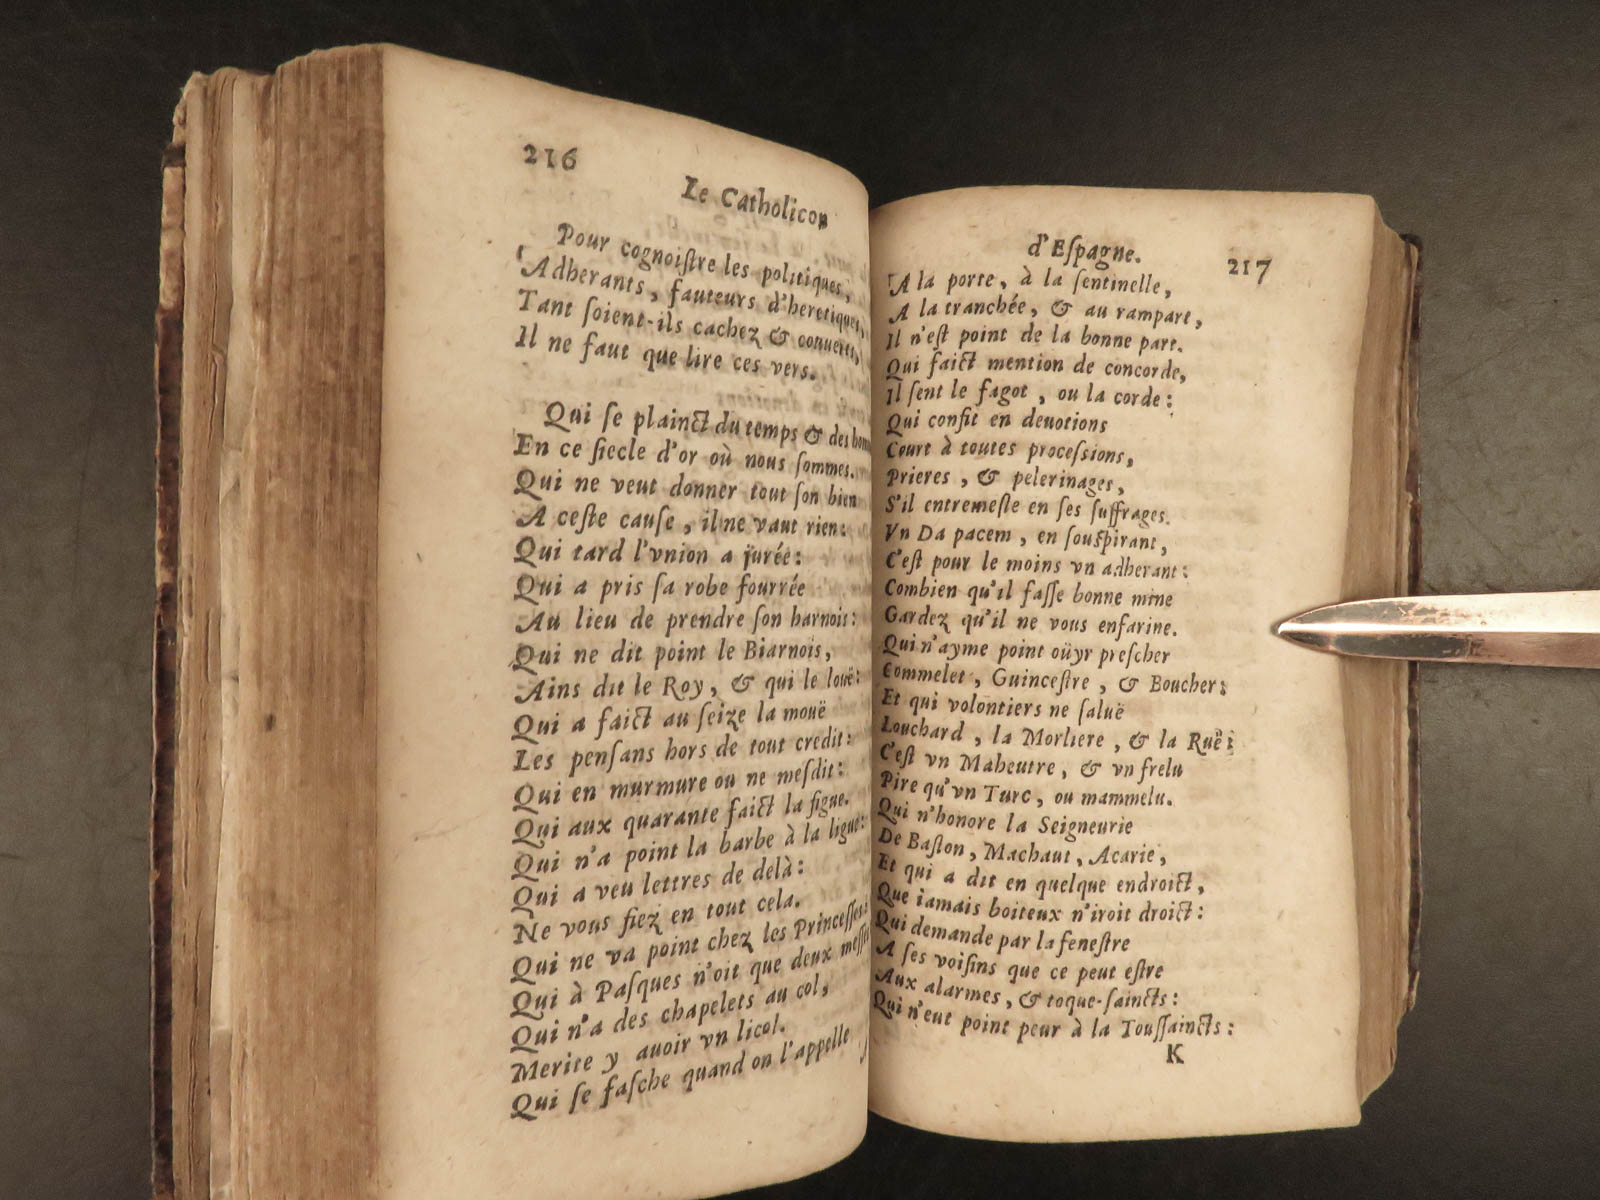 216
Le Catholicon
Pour cognoiſtre les politiques,
Adherants, fauteurs d'heretiques,
Tant ſoient-ils cachez & couuerts,
Il ne faut que lire ces vers.
Qui ſe plainct du temps & des
En ce ſiecle d'or où nous ſommes.
Qui ne veut donner tout ſon bien
A ceſte cauſe, il ne vaut rien:
Qui tard l'vnion a jurée:
Qui a pris ſa robe fourrée
Au lieu de prendre ſon harnois:
Qui ne dit point le Biarnois,
Ains dit le Roy, & qui le louë:
Qui a faict au ſeize la mouë
Les penſans hors de tout credit:
Qui en murmure ou ne meſdit:
Qui aux quarante faict la figue.
Qui n'a point la barbe à la ligue:
Qui a veu lettres de delà:
Ne vous fiez en tout cela.
Qui ne va point chez les Princeſſes:
Qui à Paſques n'oit que deux meſſes
Qui n'a des chapelets au col,
Merite y auoir vn licol.
Qui ſe faſche quand on l'appelle
d'Eſpagne.
217
A la porte, à la ſentinelle,
A la tranchée, & au rampart,
Il n'eſt point de la bonne part.
Qui faict mention de concorde,
Il ſent le fagot, ou la corde:
Qui confit en deuotions
Court à toutes proceſsions,
Prieres, & pelerinages,
S'il entremeſle en ſes ſuffrages.
Vn Da pacem, en ſouſpirant,
C'eſt pour le moins vn adherant:
Combien qu'il faſſe bonne mine
Gardez qu'il ne vous enfarine.
Qui n'ayme point oüyr preſcher
Commelet, Guinceſtre, & Boucher:
Et qui volontiers ne ſaluë
Louchard, la Morliere, & la Ruë:
C'eſt vn Maheutre, & vn frelu
Pire qu'vn Turc, ou mammelu.
Qui n'honore la Seigneurie
De Baſton, Machaut, Acarie,
Et qui a dit en quelque endroict,
Que iamais boiteux n'iroit droict:
Qui demande par la feneſtre
A ſes voiſins que ce peut eſtre
Aux alarmes, & toque-ſaincts:
Qui n'eut point peur à la Touſſaincts:
K